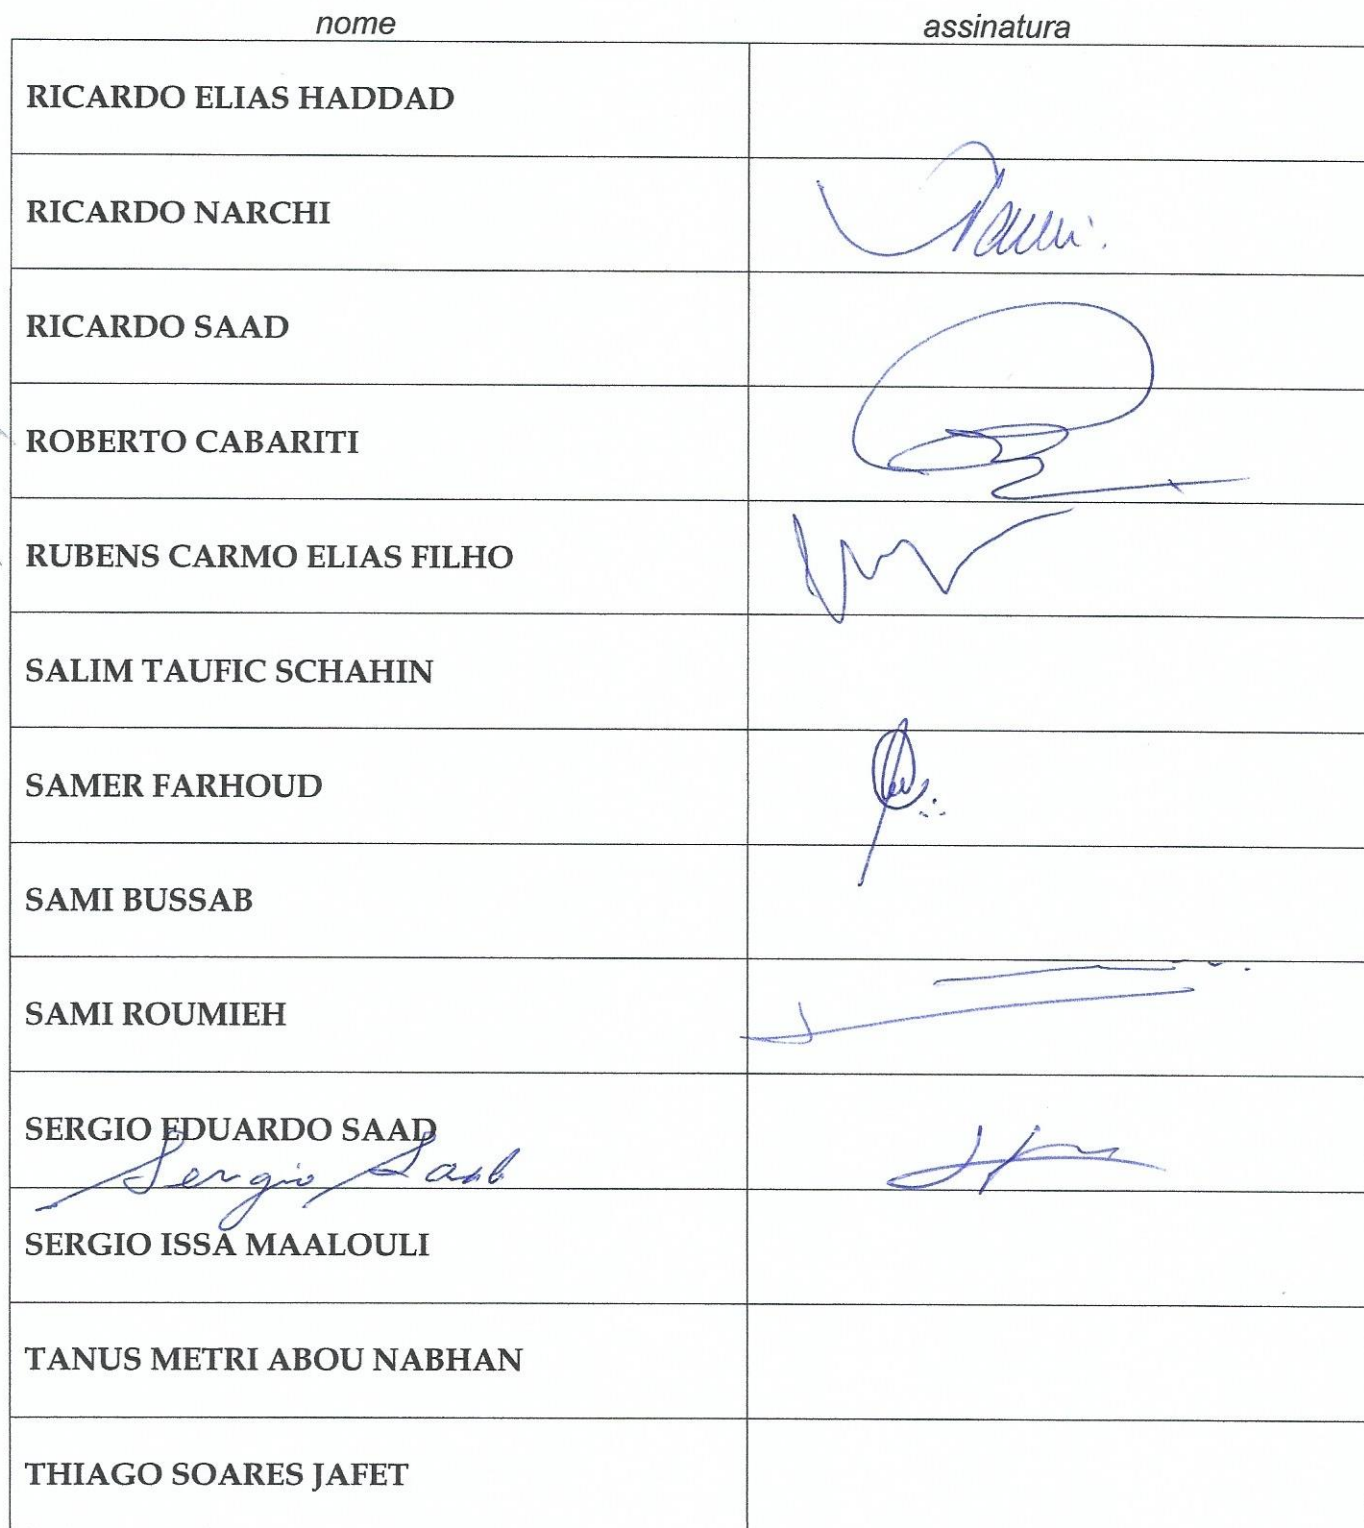 nome assinatura
RICARDO ELIAS HADDAD
RICARDO NARCHI
RICARDO SAAD
ROBERTO CABARITI
RUBENS CARMO ELIAS FILHO
SALIM TAUFIC SCHAHIN
SAMER FARHOUD
SAMI BUSSAB
SAMI ROUMIEH
SERGIO EDUARDO SAAD
Sergio Saad
SERGIO ISSA MAALOULI
TANUS METRI ABOU NABHAN
THIAGO SOARES JAFET